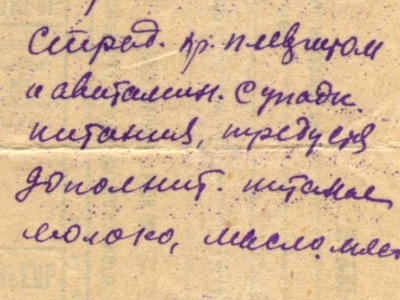 Страд. пр. плевритом
и авитамин. с упадк.
питания, требуется
дополнит. питание
молоко, масло, мясо